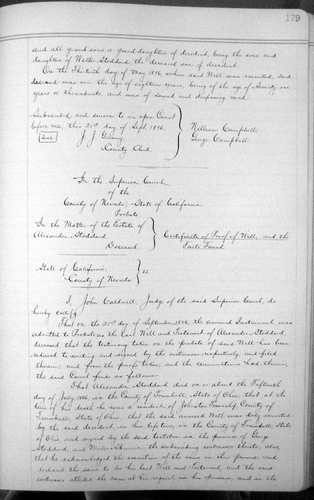 179
and all grand sons & grand daughter of decedent, being the sons and
daughter of Walter Stoddard the deceased son of deceased.
On the Thirtieth day of May 1896, when said Will was executed, said
deceased was over the age of eighteen years, being of the age of Seventy one
years or thereabouts and was of sound and disposing mind.
Subscribed and sworn to in open Court
before me, this 21st day of Sept 1896.
Seal J. J. Greany
County Clerk
William Campbell
George Campbell
In the Superior Court
of the
County of Nevada, State of California
Probate
In the Matter of the Estate of
Alexander Stoddard
Deceased
Certificate of Proof of Will, and the
Facts Found
State of California
County of Nevada
ss
I, John Caldwell, Judge of the said Superior Court, do
hereby certify
That on the 21st day of September 1896, the annexed Instrument was
admitted to Probate as the Last Will and Testament of Alexander Stoddard,
deceased that the testimony taken on the probate of said Will has been
reduced to writing and signed by the witnesses respectively, and filed
therein; and from the proofs taken, and the examinations had therein,
the said Court finds as follows:
That Alexander Stoddard died on or about the Fifteenth
day of July 1896, in the County of Trumbull, State of Ohio, that at the
time of his death he was a resident of Johnston Township County of
Trumbull State of Ohio, that the said annexed Will was duly executed
by the said decedent, in his lifetime, in the County of Trumbull, State
of Ohio and signed by the said testator in the presence of George
Stoddard, and the subscribing witnesses thereto, also,
that he acknowledged the execution of the same in their presence and
declared the same to be his last Will and Testament, and the said
witnesses attested the same at his request, in his presence, and in the